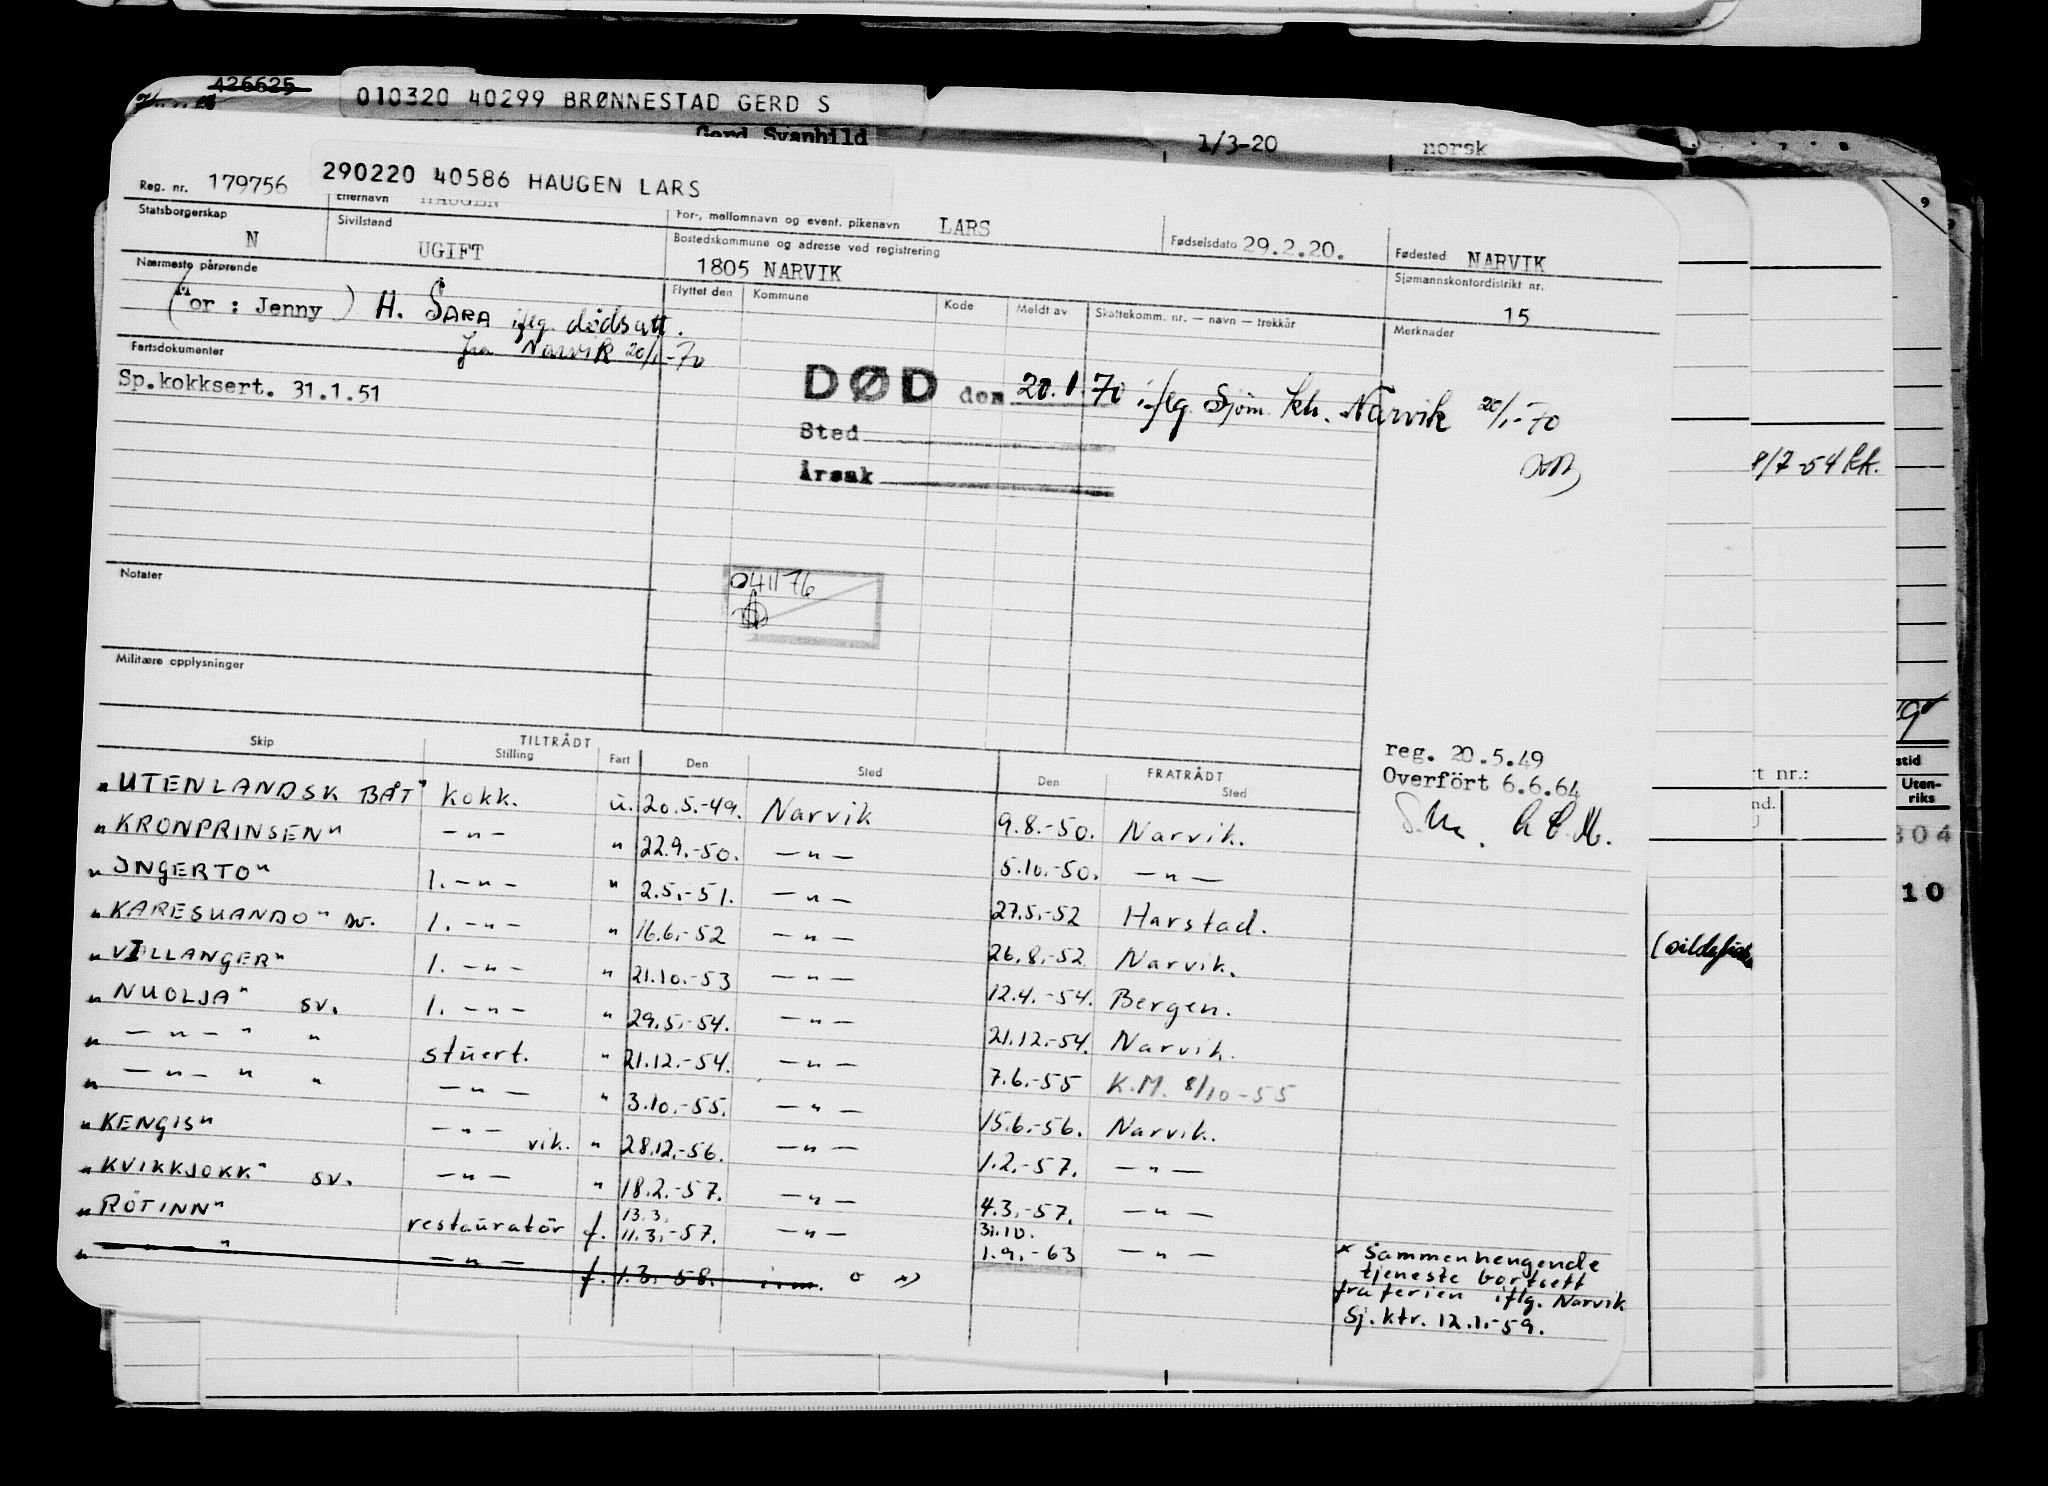 A26625
010320 40299 BRØNNESTAD GERD S
Gerd Svanhild 1/3-20 norsk
290220 40586 HAUGEN LARS
Reg. nr. 179756
Etternavn HAUGEN For-, mellomnavn og event. pikenavn LARS Fødselsdato 29.2.20. Fødested NARVIK
Statsborgerskap N Sivilstand UGIFT Bostedskommune og adresse ved registrering 1805 NARVIK Sjømannskontordistrikt nr. 15
Nærmeste pårørende
(Mor : Jenny) H. SARA iflg. dødsatt.
fra Narvik 20/1-70
Flyttet den Kommune Kode Meldt av Skattekomm. nr. — navn — trekkår Merknader
Fartsdokumenter
Sp.kokksert. 31.1.51
DØD den 20.1.70 iflg. Sjøm. kh. Narvik 20/1-70
Sted
Årsak
8/7-54 kk.
Notater
041176
Militære opplysninger
reg. 20.5.49
Overført 6.6.64
TILTRÅDT FRATRÅDT
Skip Stilling Fart Den Sted Den Sted
"UTENLANDSK BÅT" kokk. u. 20.5.-49. Narvik 9.8.-50. Narvik.
"KRONPRINSEN" —"— " 22.9.-50. —"— 5.10.-50. —"—
"INGERTO" 1. —"— " 2.5.-51. —"— 27.5.-52 Harstad.
"KARESUANDO" sv. 1. —"— " 16.6.-52 —"— 26.8.-52 Narvik.
"VILLANGER" 1. —"— " 21.10.-53 —"— 12.4.-54. Bergen.
"NUOLJA" sv. 1. —"— " 29.5.-54. —"— 21.12.-54. Narvik.
" —"— " " stuert. " 21.12.-54. —"— 7.6.-55 K.M. 8/10-55
" —"— " " —"— " 3.10.-55. —"— 15.6.-56. Narvik.
"KENGIS" —"— vik. " 28.12.-56. —"— 1.2.-57. —"—
"KVIKKJOKK" sv. —"— " 18.2.-57. —"— 4.3.-57. —"—
13.3. 31.10.
"RÖTINN" restauratør f. 11.3.-57. —"— 1.9.-63 —"—
" —"— " —"— f. 1.3.-58.
* Sammenhengende
tjeneste bortsett
fra ferien iflg. Narvik
Sj.ktr. 12.1.-59.
Uten-
riks
304
10